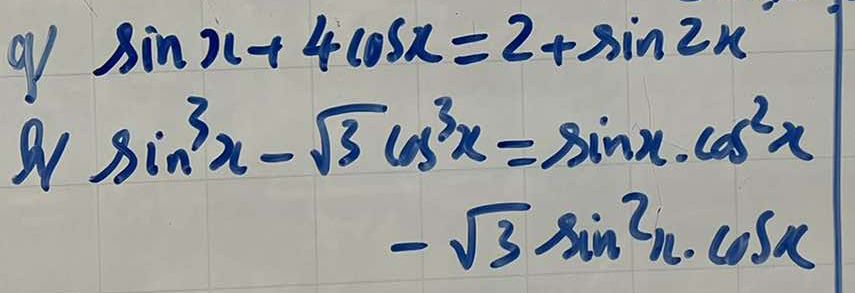 g/ sin x + 4cosx = 2 + sin 2x
h/ sin³x - √3 cos³x = sinx.cos²x
- √3 sin²x.cosx